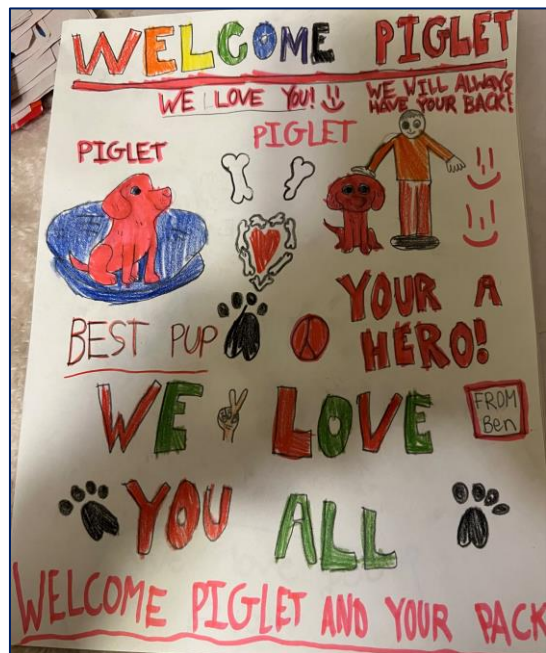 WELCOME PIGLET
WE LOVE YOU!
WE WILL ALWAYS
HAVE YOUR BACK!
PIGLET
PIGLET
BEST PUP
YOUR A
HERO!
WE LOVE
FROM
Ben
YOU ALL
WELCOME PIGLET AND YOUR PACK